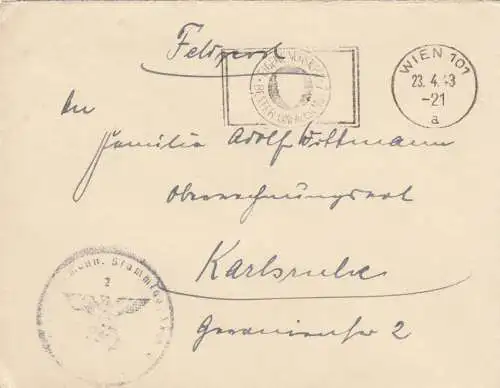 Feldpost
WIEN 101
23. 4. 43
-21
a
An
Familie Adolf Wittmann
Oberrechnungsrat
Karlsruhe
Geranienstr 2
2